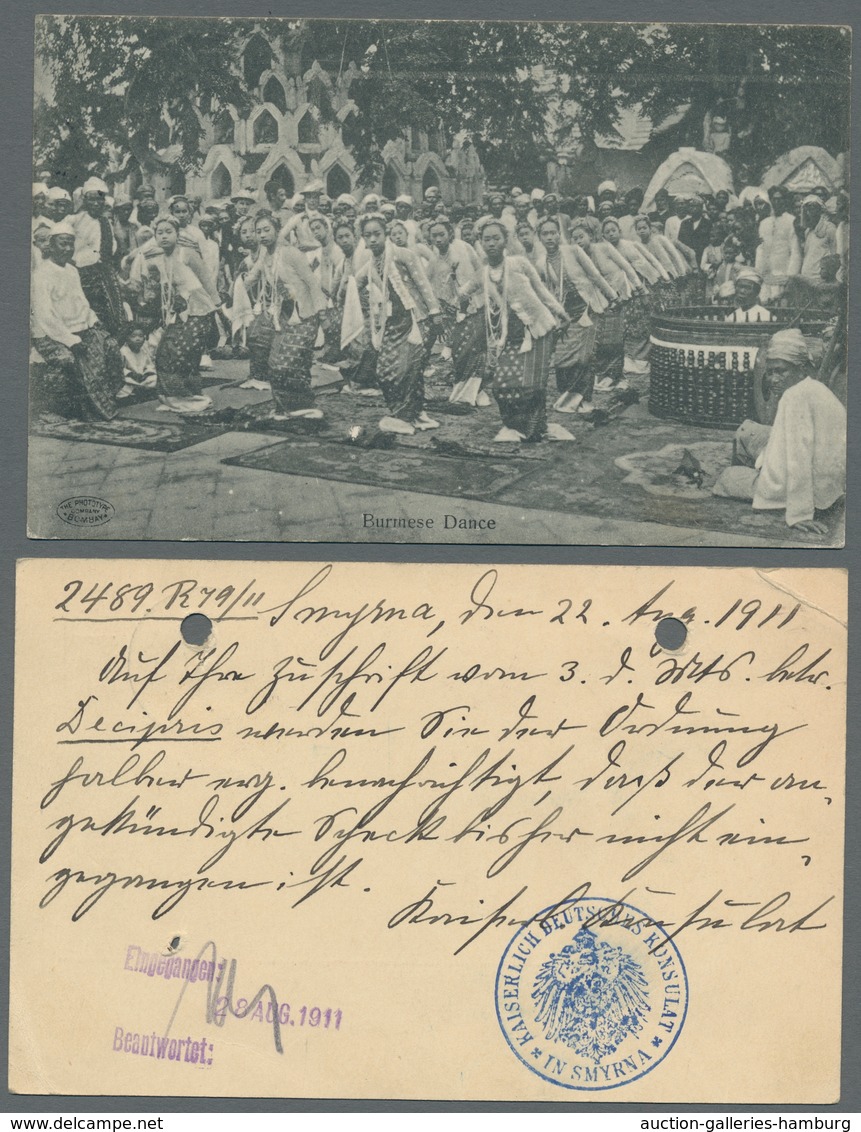 THE PHOTOTYPE
COMPANY
BOMBAY
Burmese Dance
2489. R79/11 Smyrna, den 22. Aug. 1911
Auf Ihre Zuschrift vom 3. d. Mts. betr.
Decipris werden Sie der Ordnung
halber erg. benachrichtigt, daß der an-
gekündigte Scheck bisher nicht ein-
gegangen ist.
Kaiserl. Konsulat
Eingegangen:
28 AUG. 1911
Beantwortet:
KAISERLICH DEUTSCHES KONSULAT
* IN SMYRNA *
auction-galleries-hamburg